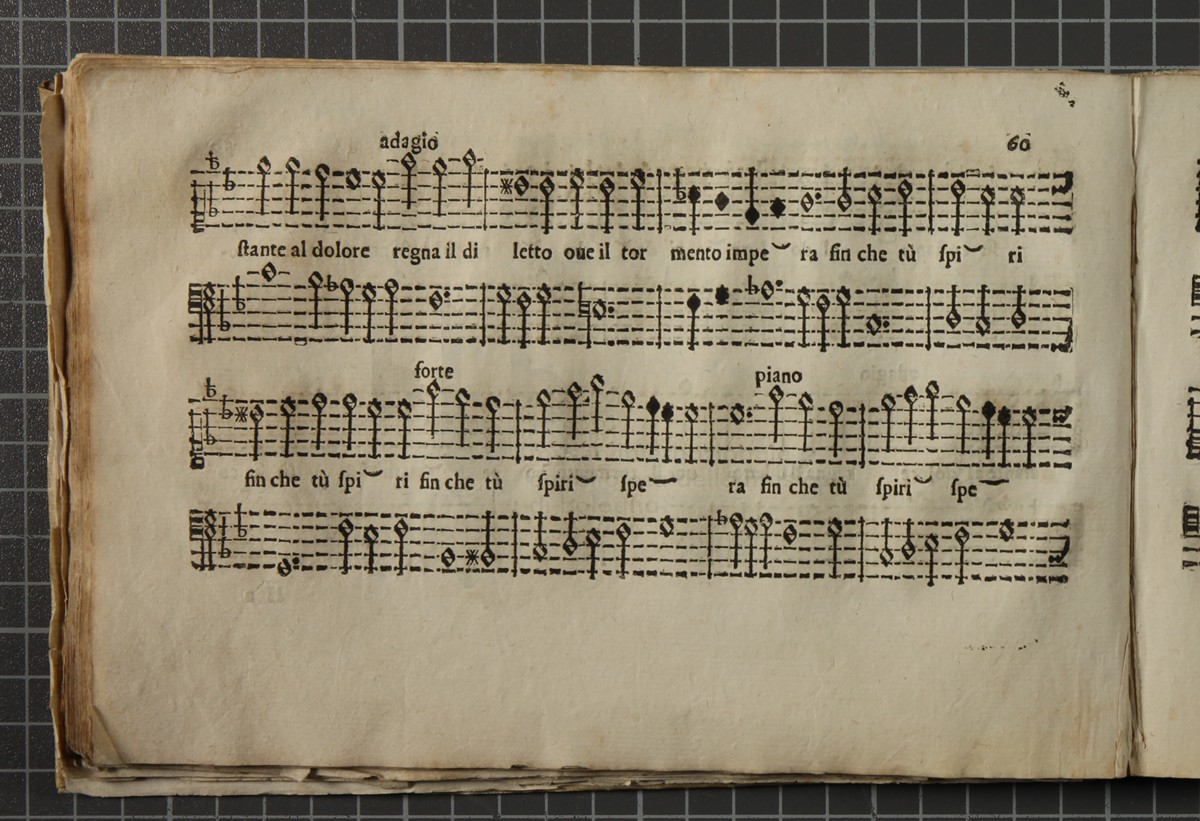 adagio 60
ſtante al dolore regna il di letto oue il tor mento impe ra fin che tù ſpi ri
forte piano
fin che tù ſpi ri fin che tù ſpiri ſpe ra fin che tù ſpiri ſpe